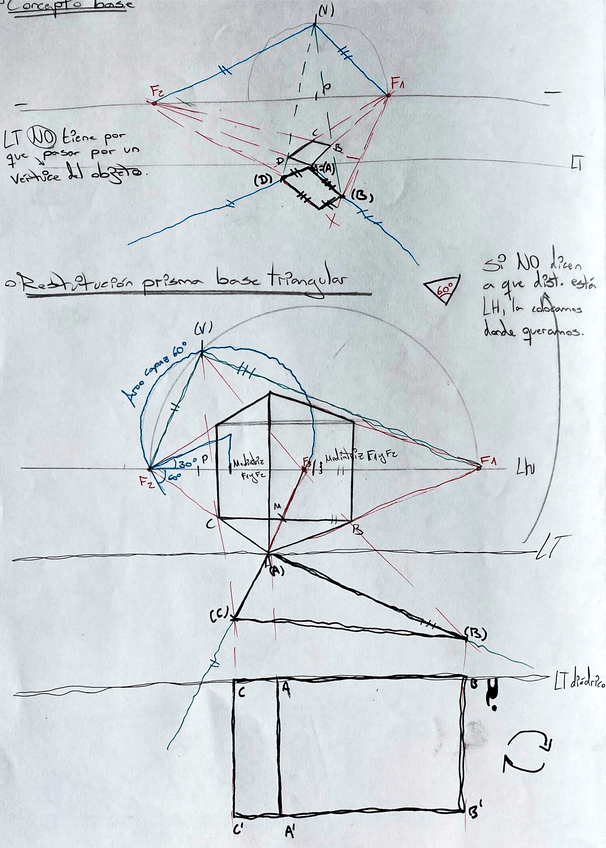 Concepto base
(V)
F2
P
F1
LT NO tiene por
que pasar por un
vértice del objeto.
C
B
D
A=(A)
LT
(D)
(B)
Restitución prisma base triangular
60°
Si NO dicen
a que dist. está
LH, la colocamos
donde queramos.
(V)
Arco capaz 60°
P
30°
60°
F2
Mediatriz
F1 y F2
F3
Mediatriz F1 y F2
F1
LH
M
C
B
LT
(A)
(C)
(B)
C
A
B
LT diédrico
C'
A'
B'